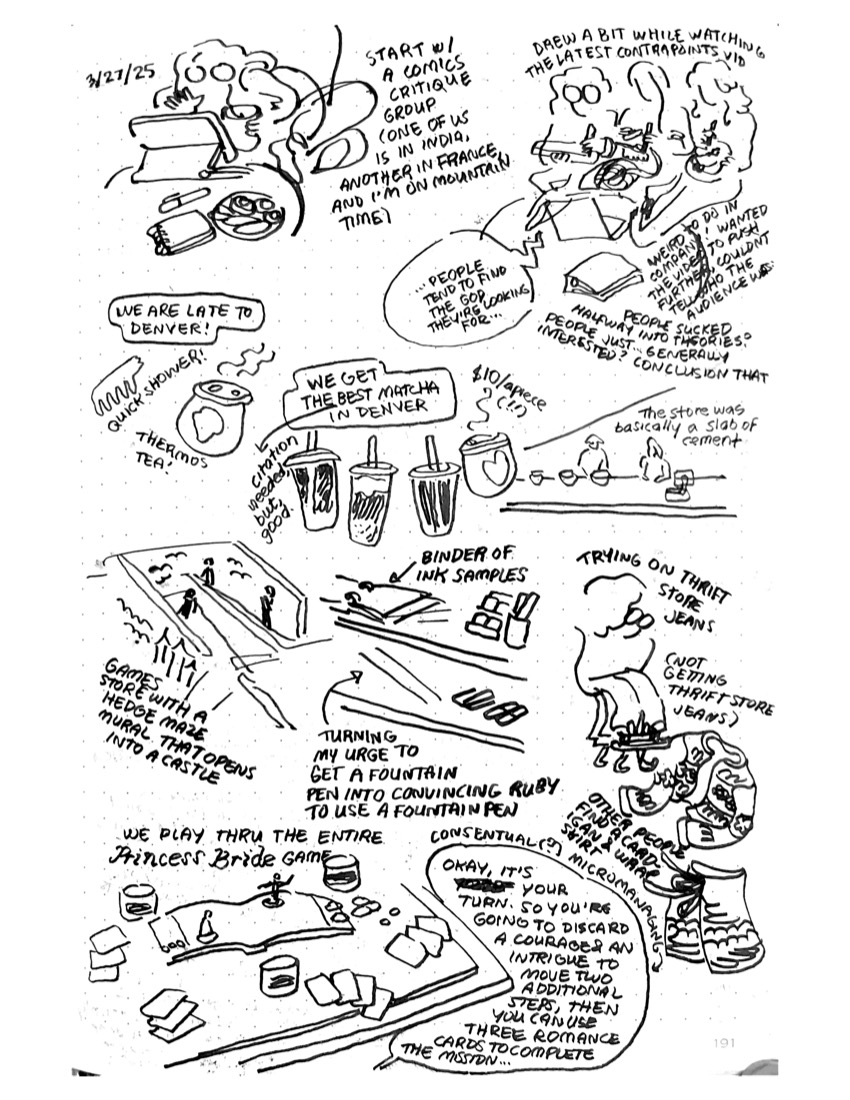 3/27/25
START W/
A COMICS
CRITIQUE
GROUP
(ONE OF US
IS IN INDIA,
ANOTHER IN FRANCE,
AND I'M ON MOUNTAIN
TIME)
DREW A BIT WHILE WATCHING
THE LATEST CONTRAPOINTS VID
...PEOPLE
TEND TO FIND
THE GOD
THEY'RE LOOKING
FOR...
WEIRD TO DO IN
COMPANY! WANTED
THE VIDEO TO PUSH
FURTHER, COULDN'T
TELL WHO THE
AUDIENCE WAS
PEOPLE SUCKED
HALFWAY INTO THEORIES?
PEOPLE JUST... GENERALLY
INTERESTED? CONCLUSION THAT
WE ARE LATE TO
DENVER!
QUICK SHOWER!
THERMOS
TEA!
WE GET
THE BEST MATCHA
IN DENVER
citation
needed,
but,
good.
$10/apiece
(!!)
The store was
basically a slab of
cement
GAMES
STORE WITH A
HEDGE MAZE
MURAL THAT OPENS
INTO A CASTLE
BINDER OF
INK SAMPLES
TURNING
MY URGE TO
GET A FOUNTAIN
PEN INTO CONVINCING RUBY
TO USE A FOUNTAIN PEN
TRYING ON THRIFT
STORE
JEANS
(NOT
GETTING
THRIFT STORE
JEANS)
OTHER PEOPLE
FIND A CARD-
IGAN & WRAP
SKIRT
WE PLAY THRU THE ENTIRE
Princess Bride GAME
CONSENTUAL(?) MICROMANAGING
OKAY, IT'S
YOUR
TURN. SO YOU'RE
GOING TO DISCARD
A COURAGE & AN
INTRIGUE TO
MOVE TWO
ADDITIONAL
STEPS, THEN
YOU CAN USE
THREE ROMANCE
CARDS TO COMPLETE
THE MISSION...
191